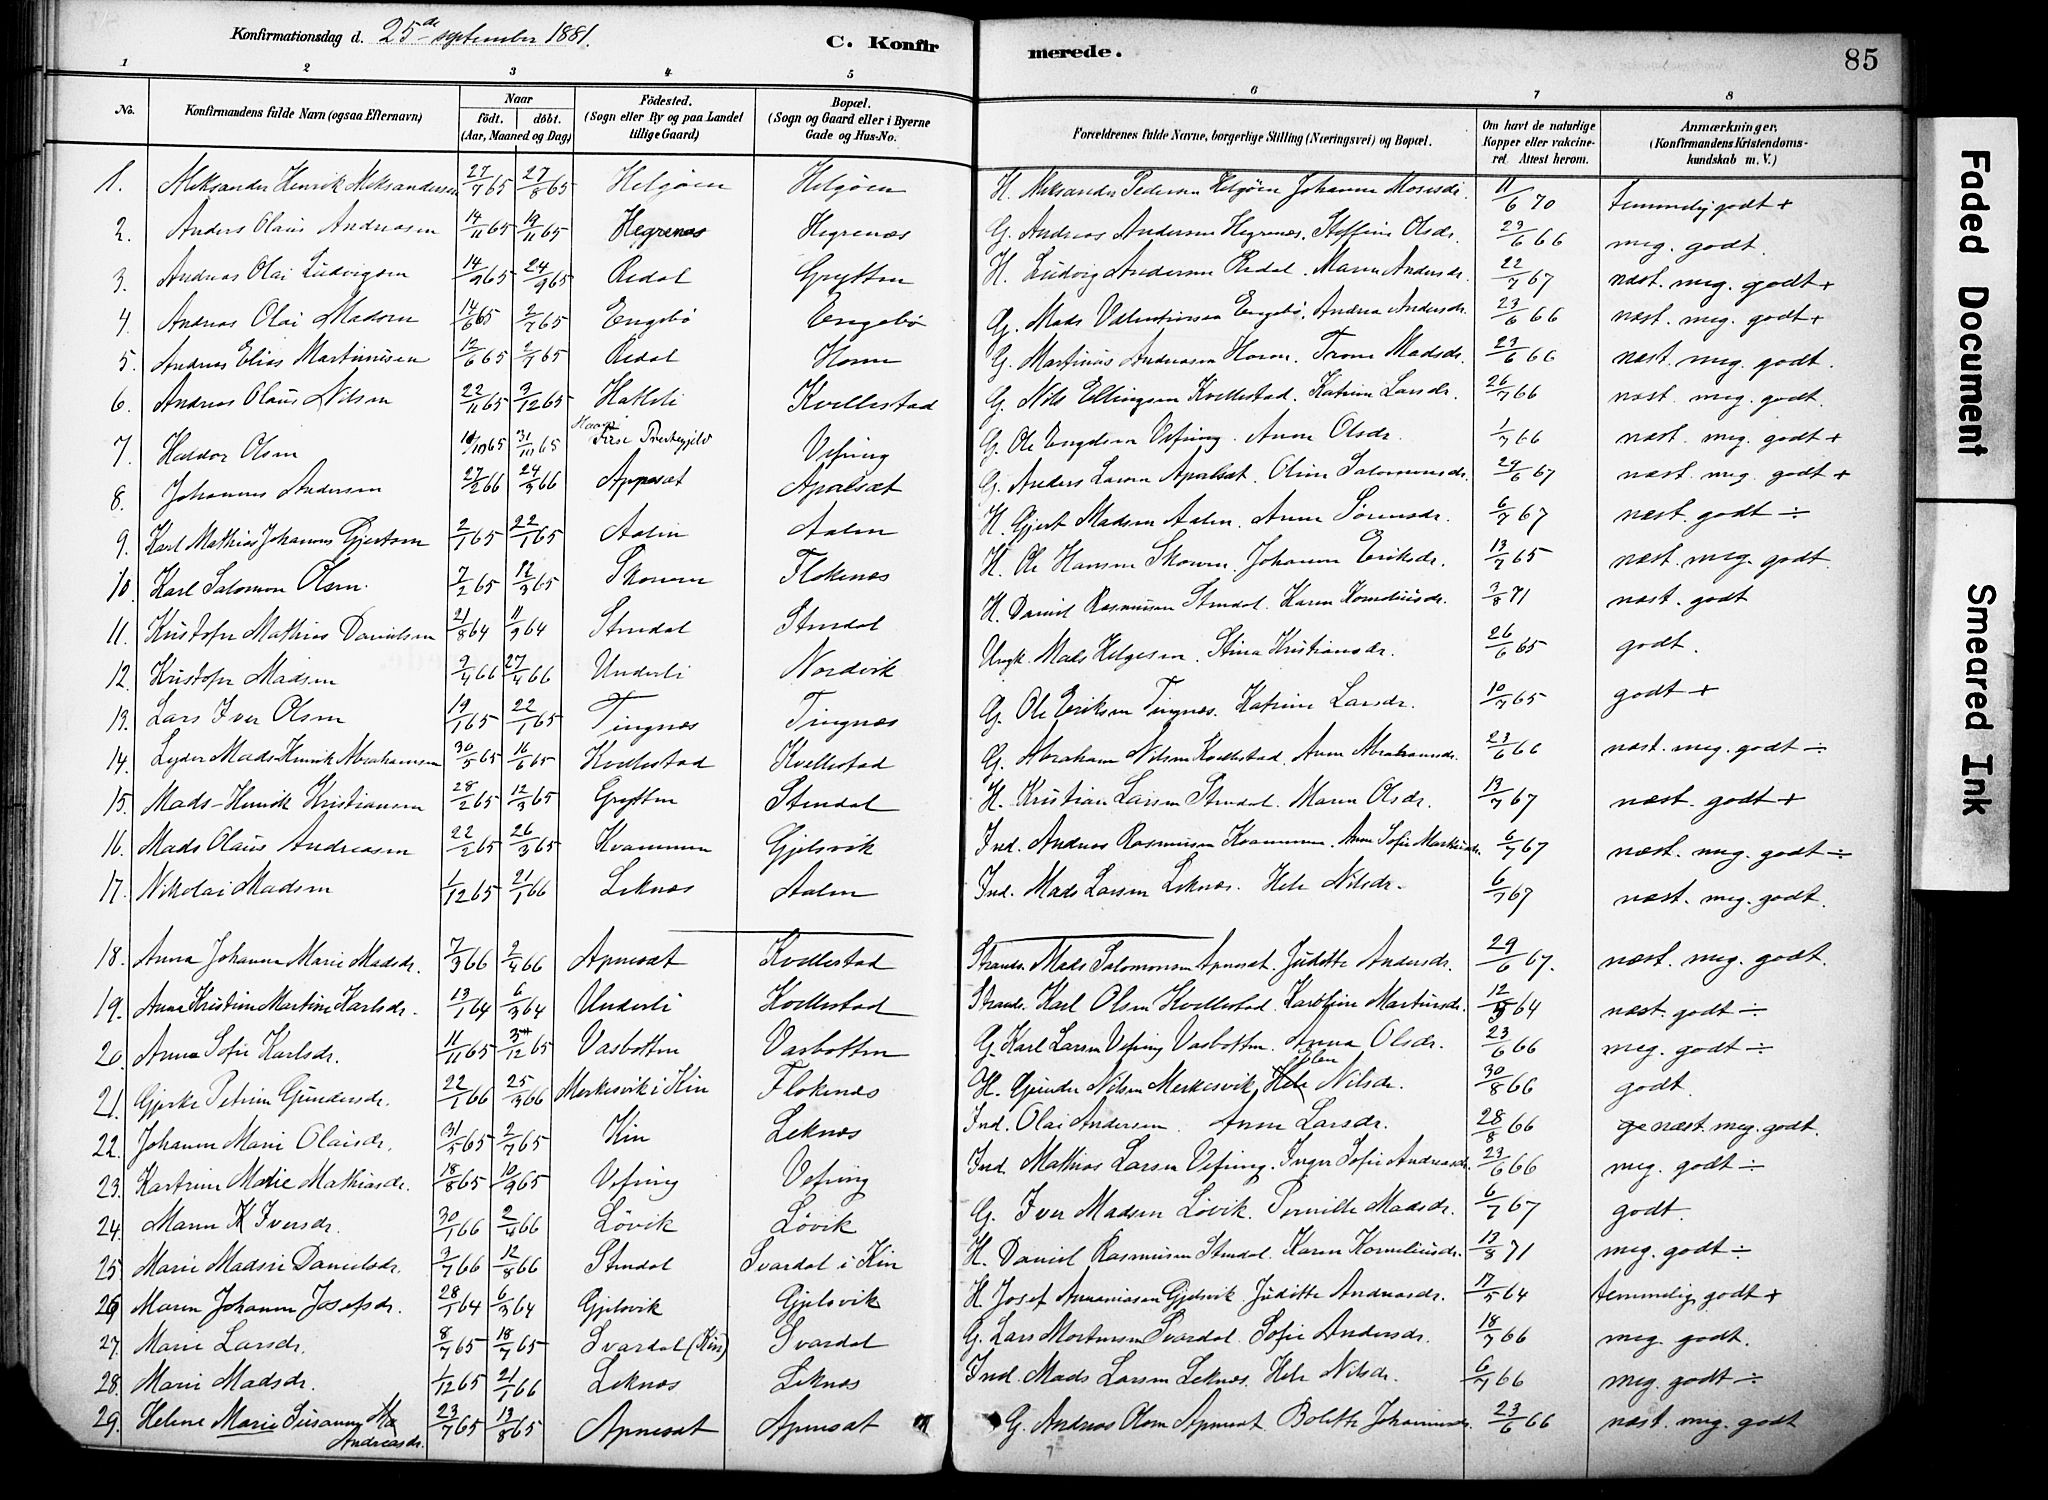 Konfirmationsdag d. 25de september 1881. C. Konfirmerede. 85
1 2 3 4 5 6 7 8
No. Konfirmandens fulde Navn (ogsaa Efternavn) Naar født. døbt. (Aar, Maaned og Dag) Fødested. (Sogn eller By og paa Landet tillige Gaard) Bopæl. (Sogn og Gaard eller i Byerne Gade og Hus-No. Forældrenes fulde Navne, borgerlige Stilling (Næringsvei) og Bopæl. Om havt de naturlige Kopper eller vakcineret. Attest herom. Anmærkninger, (Konfirmandens Kristendomskundskab m. V.)
1. Aleksander Henrik Aleksandersen 27/7 65 27/8 65 Helgøen Helgøen H. Aleksander Pedersen Helgøen Johanne Mosesdr. 11/6 70 temmelig godt +
2. Anders Olaus Andreasen 14/11 65 19/11 65 Hegrenæs Hegrenæs G. Andreas Andersen Hegrenes. Steffine Olsdr. 23/6 66 meg. godt
3. Andreas Olai Ludvigsen 14/9 65 24/9 65 Redal Grytten H. Ludvig Andersen Redal. Maren Andersdr. 22/7 67 næst. meg. godt +
4. Andreas Olai Madsen 14/6 65 2/7 65 Engebø Engebø G. Mads Valentinsen Engebø. Andrea Andersdr. 23/6 66 næst. meg. godt +
5. Andreas Elias Martinusen 12/6 65 2/7 65 Redal Horne G. Martinus Andreasen Horne. Trone Madsdr. 23/6 66 næst. meg. godt.
6. Andreas Olaus Nilsen 22/11 65 3/12 65 Hatleli Kvellestad G. Nils Ellingsen Kvellestad. Katrine Larsdr. 26/7 66 næst. meg. godt.
7. Haldor Olsen 65 31/10 65 Præstegjeld Vefring G. Ole Engelsen Vefring. Anne Olsdr. 1/7 66 næst. meg. godt +
8. Johannes Andersen 27/2 66 24/3 66 Appesæt Apalsæt G. Anders Larsen Apalsæt. Oline Salomonsdr. 29/6 67 næst. meg. godt +
9. Karl Mathias Johannes Gjertsen 2/1 65 22/1 65 Aalen Aalen H. Gjert Madsen Aalen. Anne Sørensdr. 6/7 67 næst. godt ÷
10. Karl Salomon Olsen. 7/2 65 12/3 65 Skorven Flokenæs H. Ole Hansen Skorven. Johanne Eriksdr. 13/7 65 næst. meg. godt.
11. Kristofer Mathias Danielsen 21/8 64 11/9 64 Stendal Stendal H. Daniel Rasmusen Stendal. Karen Korneliusdr. 3/8 71 næst. godt
12. Kristofer Madsen 9/4 66 27/4 66 Underli Nordvik Ungk. Mads Helgesen. Stina Kristiansdr. 26/6 65 godt.
13. Lars Iver Olsen 19/1 65 22/1 65 Tingnæs Tingnæs G. Ole Eriksen Tingnæs. Katrine Larsdr. 10/7 65 godt +
14. Lyder Mads Henrik Abrahamsen 30/5 65 16/6 65 Kvellestad Kvellestad G. Abraham Nilsen Kvellestad. Anne Abrahamsdr. 23/6 66 næst. meg. godt ÷
15. Mads-Henrik Kristiansen 28/2 65 12/3 65 Grytten Stendal H. Kristian Larsen Stendal. Maren Olsdr. 13/7 67 næst. godt +
16. Mads Olaus Andreasen 22/2 65 26/3 65 Kvammen Gjelsvik Ind. Andreas Rasmusen Kvammen. Anne Sofie Markusdr. 6/7 67 næst. meg. godt ÷
17. Nikolai Madsen 1/12 65 21/1 66 Leknæs Aalen Ind. Mads Larsen Leknæs. Hele Nilsdr. 6/7 67 næst. meg. godt.
18. Anna Johanne Marie Madsdr. 7/3 66 2/4 66 Apnesæt Kvellestad Strands. Mads Salomonsen Apnesæt. Juditte Andersdr. 29/6 67. næst. meg. godt.
19. Anne Kristine Martine Karlsdr. 13/1 64 6/3 64 Underli Kvellestad Strands. Karl Olsen Kvellestad. Karoline Martinsdr. 64 næst. godt ÷
20. Anna Sofie Karlsdr. 11/11 65 3/12 65 Vasbotten Vasbotten G. Karl Larsen Vefring Vasbotten. Anna Olsdr. 23/6 66 meg. godt ÷
21. Gjerke Petrine Gundersdr. 22/1 66 25/3 66 Merkesvik i Kin Flokenæs H. Gunder Nilsen Merkesvik Hele Elen Nilsdr. 30/8 66 godt.
22. Johanne Marie Olaisdr. 31/5 65 2/7 65 Kin Leknæs Ind. Olai Andersen. Anne Larsdr. 28/8 66 næst. meg. godt.
23. Kartrine Malie Mathiasdr. 18/8 65 10/9 65 Vefring Vefring Ind. Mathias Larsen Vefring. Inger Sofie Andreasdr. 23/6 66 meg. godt ÷
24. Maren K Iversdr. 30/1 66 2/4 66 Løvik Løvik G. Iver Madsen Løvik. Pernille Madsdr. 6/7 67 godt.
25. Marie Madsine Danielsdr. 3/7 66 12/8 66 Stendal Svardal i Kin H. Daniel Rasmusen Stendal. Karen Korneliusdr. 13/8 71 meg. godt ÷
26 Maren Johanne Josefsdr. 28/1 64 6/3 64 Gjelsvik Gjelsvik H. Josef Annaniasen Gjelsvik Juditte Andreasdr. 17/5 64 temmelig godt +
27. Marie Larsdr. 8/7 65 18/7 65 Svardal (Kin) Svardal G. Lars Mortensen Svardal. Sofie Andersdr. 18/7 66 meg. godt.
28. Marie Madsdr. 1/12 65 21/1 66 Leknæs Leknæs Ind. Mads Larsen Leknæs. Hele Nilsdr. 6/7 66 meg. godt ÷
29. Helene Marie Susanne Andreasdr. 23/7 65 13/8 65 Apnesæt Apnesæt G. Andreas Olsen Apnesæt Bolette Johannesdr. 23/6 66 næst. meg. godt
Faded Document
Smeared Ink